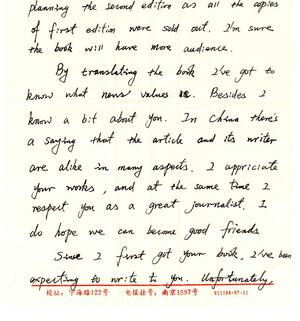 planning the second edition as all the copies
of first edition were sold out. I'm sure
the book will have more audience.
By translating the book I've got to
know what news values is. Besides I
know a bit about you. In China there's
a saying that the article and its writer
are alike in many aspects. I appiciate
your works, and at the same time I
respect you as a great journalist. I
do hope we can become good friends
Since I first got your book, I've been
expecting to write to you. Unfortunately,
校址：宁海路122号 电报挂号：南京1597号 911288·97·12